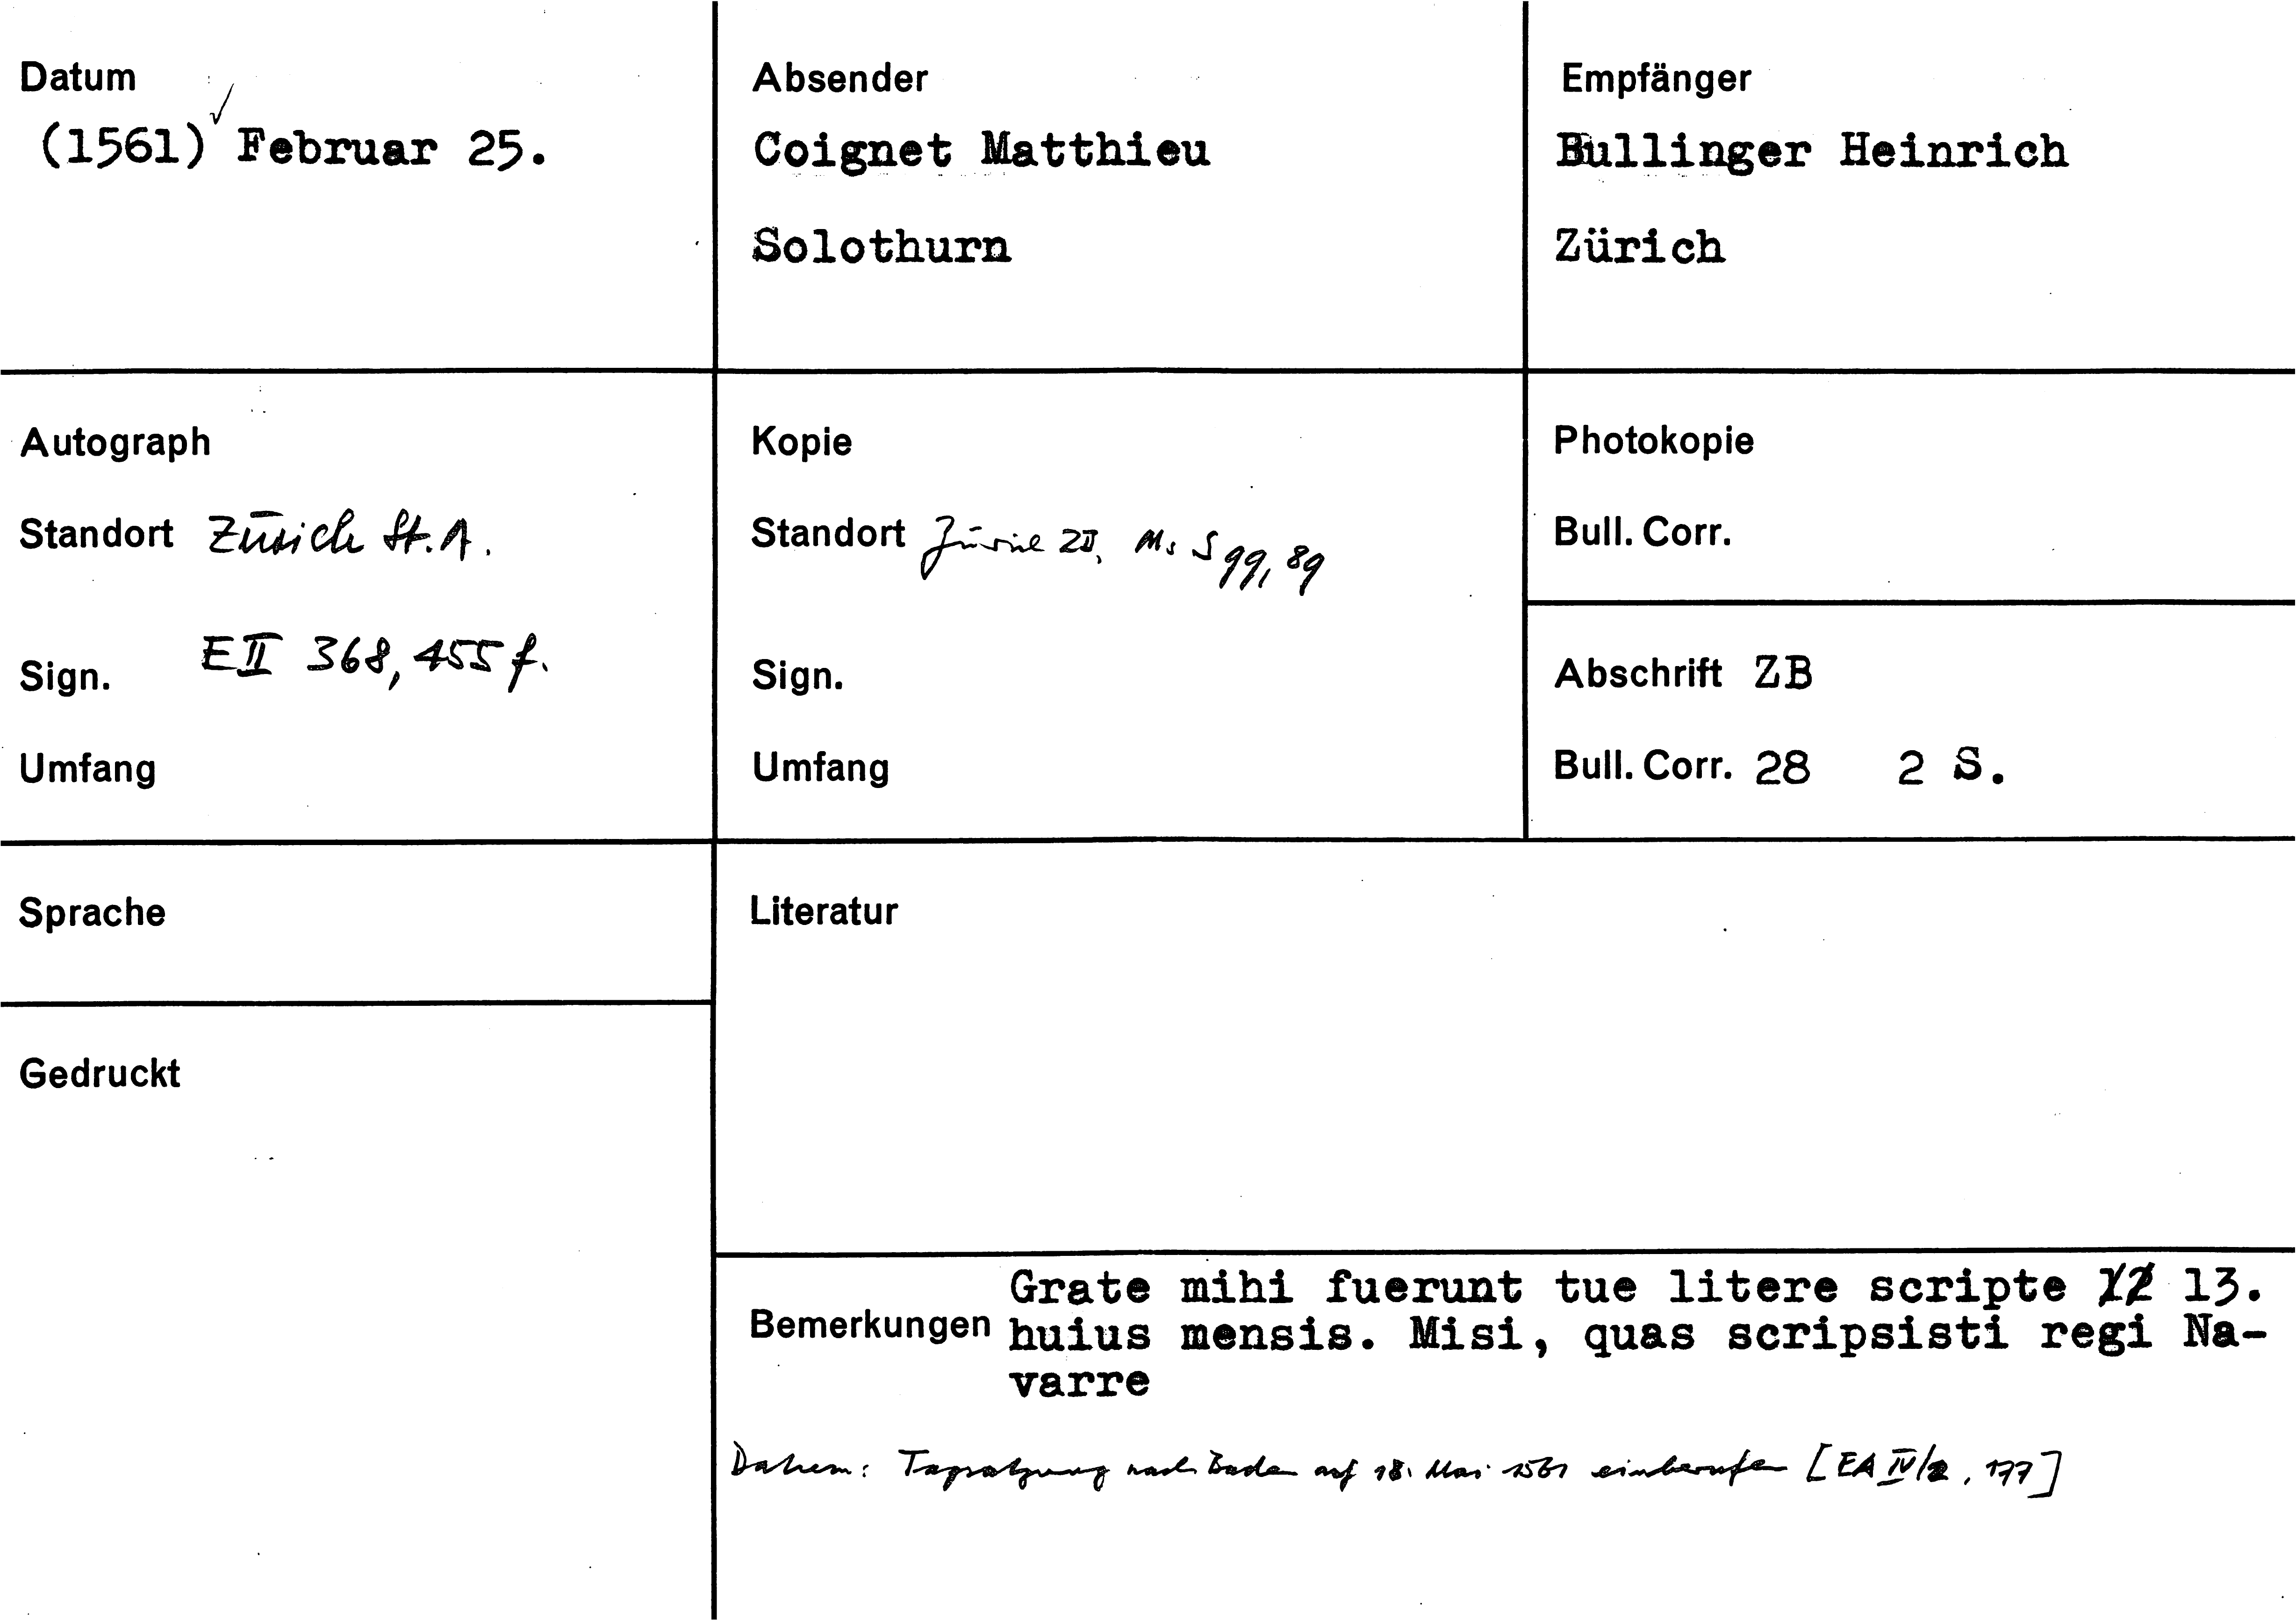 Datum
(1561) Februar 25.
Absender
Coignet Matthieu
Solothurn
Empfänger
Bullinger Heinrich
Zürich
Autograph
Standort Zürich St.A.
Sign. E II 368, 455 f.
Umfang
Kopie
Standort Zürich ZB, Ms S 99, 89
Sign.
Umfang
Photokopie
Bull. Corr.
Abschrift ZB
Bull. Corr. 28 2 S.
Sprache
Gedruckt
Literatur
Bemerkungen
Grate mihi fuerunt tue litere scripte 12 13.
huius mensis. Misi, quas scripsisti regi Na-
varre
Datum: Tagsatzung nach Baden auf 18. Mai 1561 einberufen [EA IV/2, 177]